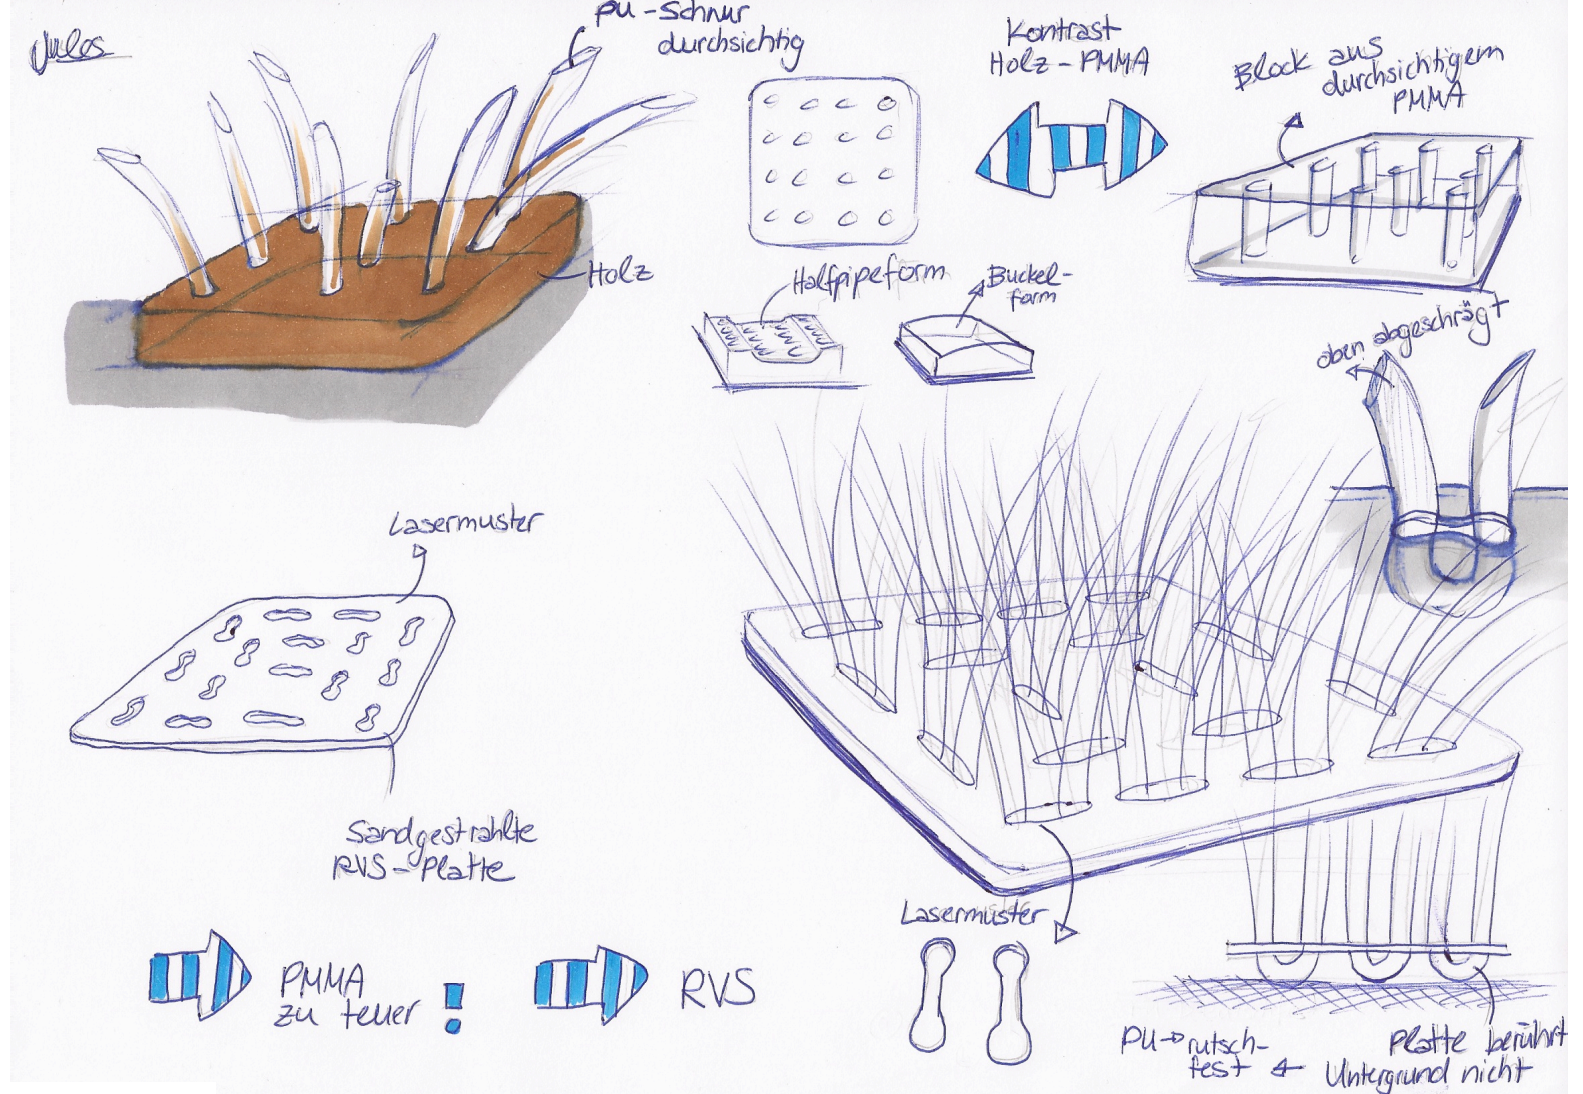 Jules
PU-Schnur
durchsichtig
Kontrast
Holz-PMMA
Block aus
durchsichtigem
PMMA
Holz
Halfpipeform
Buckel-
form
oben abgeschrägt
Lasermuster
Sandgestrahlte
RVS-Platte
PMMA
zu teuer !
RVS
Lasermuster
PU→rutsch-
fest ←
Platte berührt
Untergrund nicht